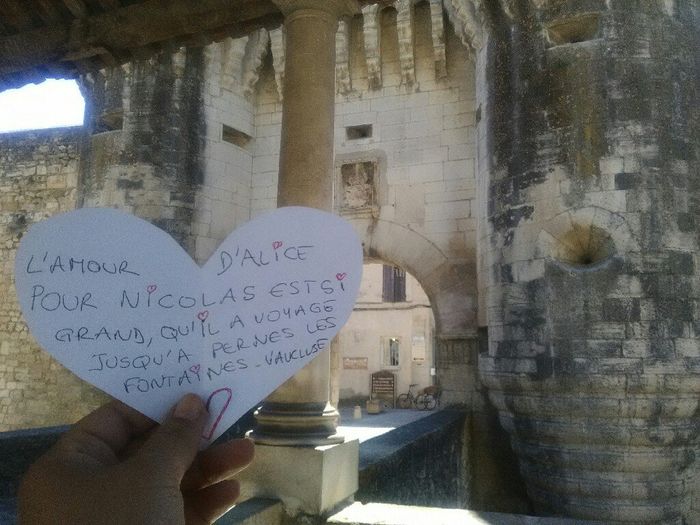 L'AMOUR D'ALICE
POUR NICOLAS EST SI
GRAND, QU'IL A VOYAGÉ
JUSQU'A PERNES LES
FONTAINES - VAUCLUSE